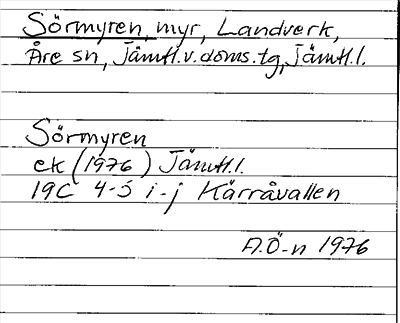 Sörmyren, myr, Landverk,
Åre sn, Jämtl.v.doms.tg, Jämtl.l.
Sörmyren
ek (1976) Jämtl.l.
19C 4-5 i-j Kärråvallen
A.Ö-n 1976